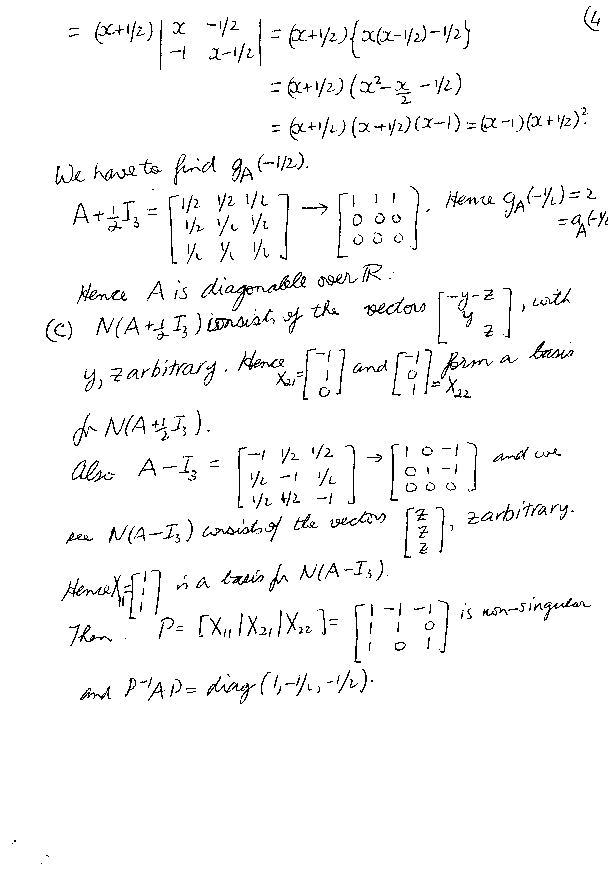 (4
= (x+1/2) | x -1/2 ; -1 x-1/2 | = (x+1/2){x(x-1/2)-1/2}
= (x+1/2)(x²-x/2-1/2)
= (x+1/2)(x+1/2)(x-1) = (x-1)(x+1/2)².
We have to find g_A(-1/2).
A+½I₃ = [1/2 1/2 1/2 ; 1/2 1/2 1/2 ; 1/2 1/2 1/2] → [1 1 1 ; 0 0 0 ; 0 0 0]. Hence g_A(-½) = 2
= a_A(-½
Hence A is diagonable over ℝ.
(c) N(A+½I₃) consists of the vectors [-y-z ; y ; z], with
y, z arbitrary. Hence X₂₁ = [-1 ; 1 ; 0] and [-1 ; 0 ; 1] = X₂₂ form a basis
for N(A+½I₃).
Also A-I₃ = [-1 1/2 1/2 ; 1/2 -1 1/2 ; 1/2 1/2 -1] → [1 0 -1 ; 0 1 -1 ; 0 0 0] and we
see N(A-I₃) consists of the vectors [z ; z ; z], z arbitrary.
Hence X₁₁ = [1 ; 1 ; 1] is a basis for N(A-I₃).
Then P = [X₁₁|X₂₁|X₂₂] = [1 -1 -1 ; 1 1 0 ; 1 0 1] is non-singular
and P⁻¹AP = diag(1, -1/2, -1/2).